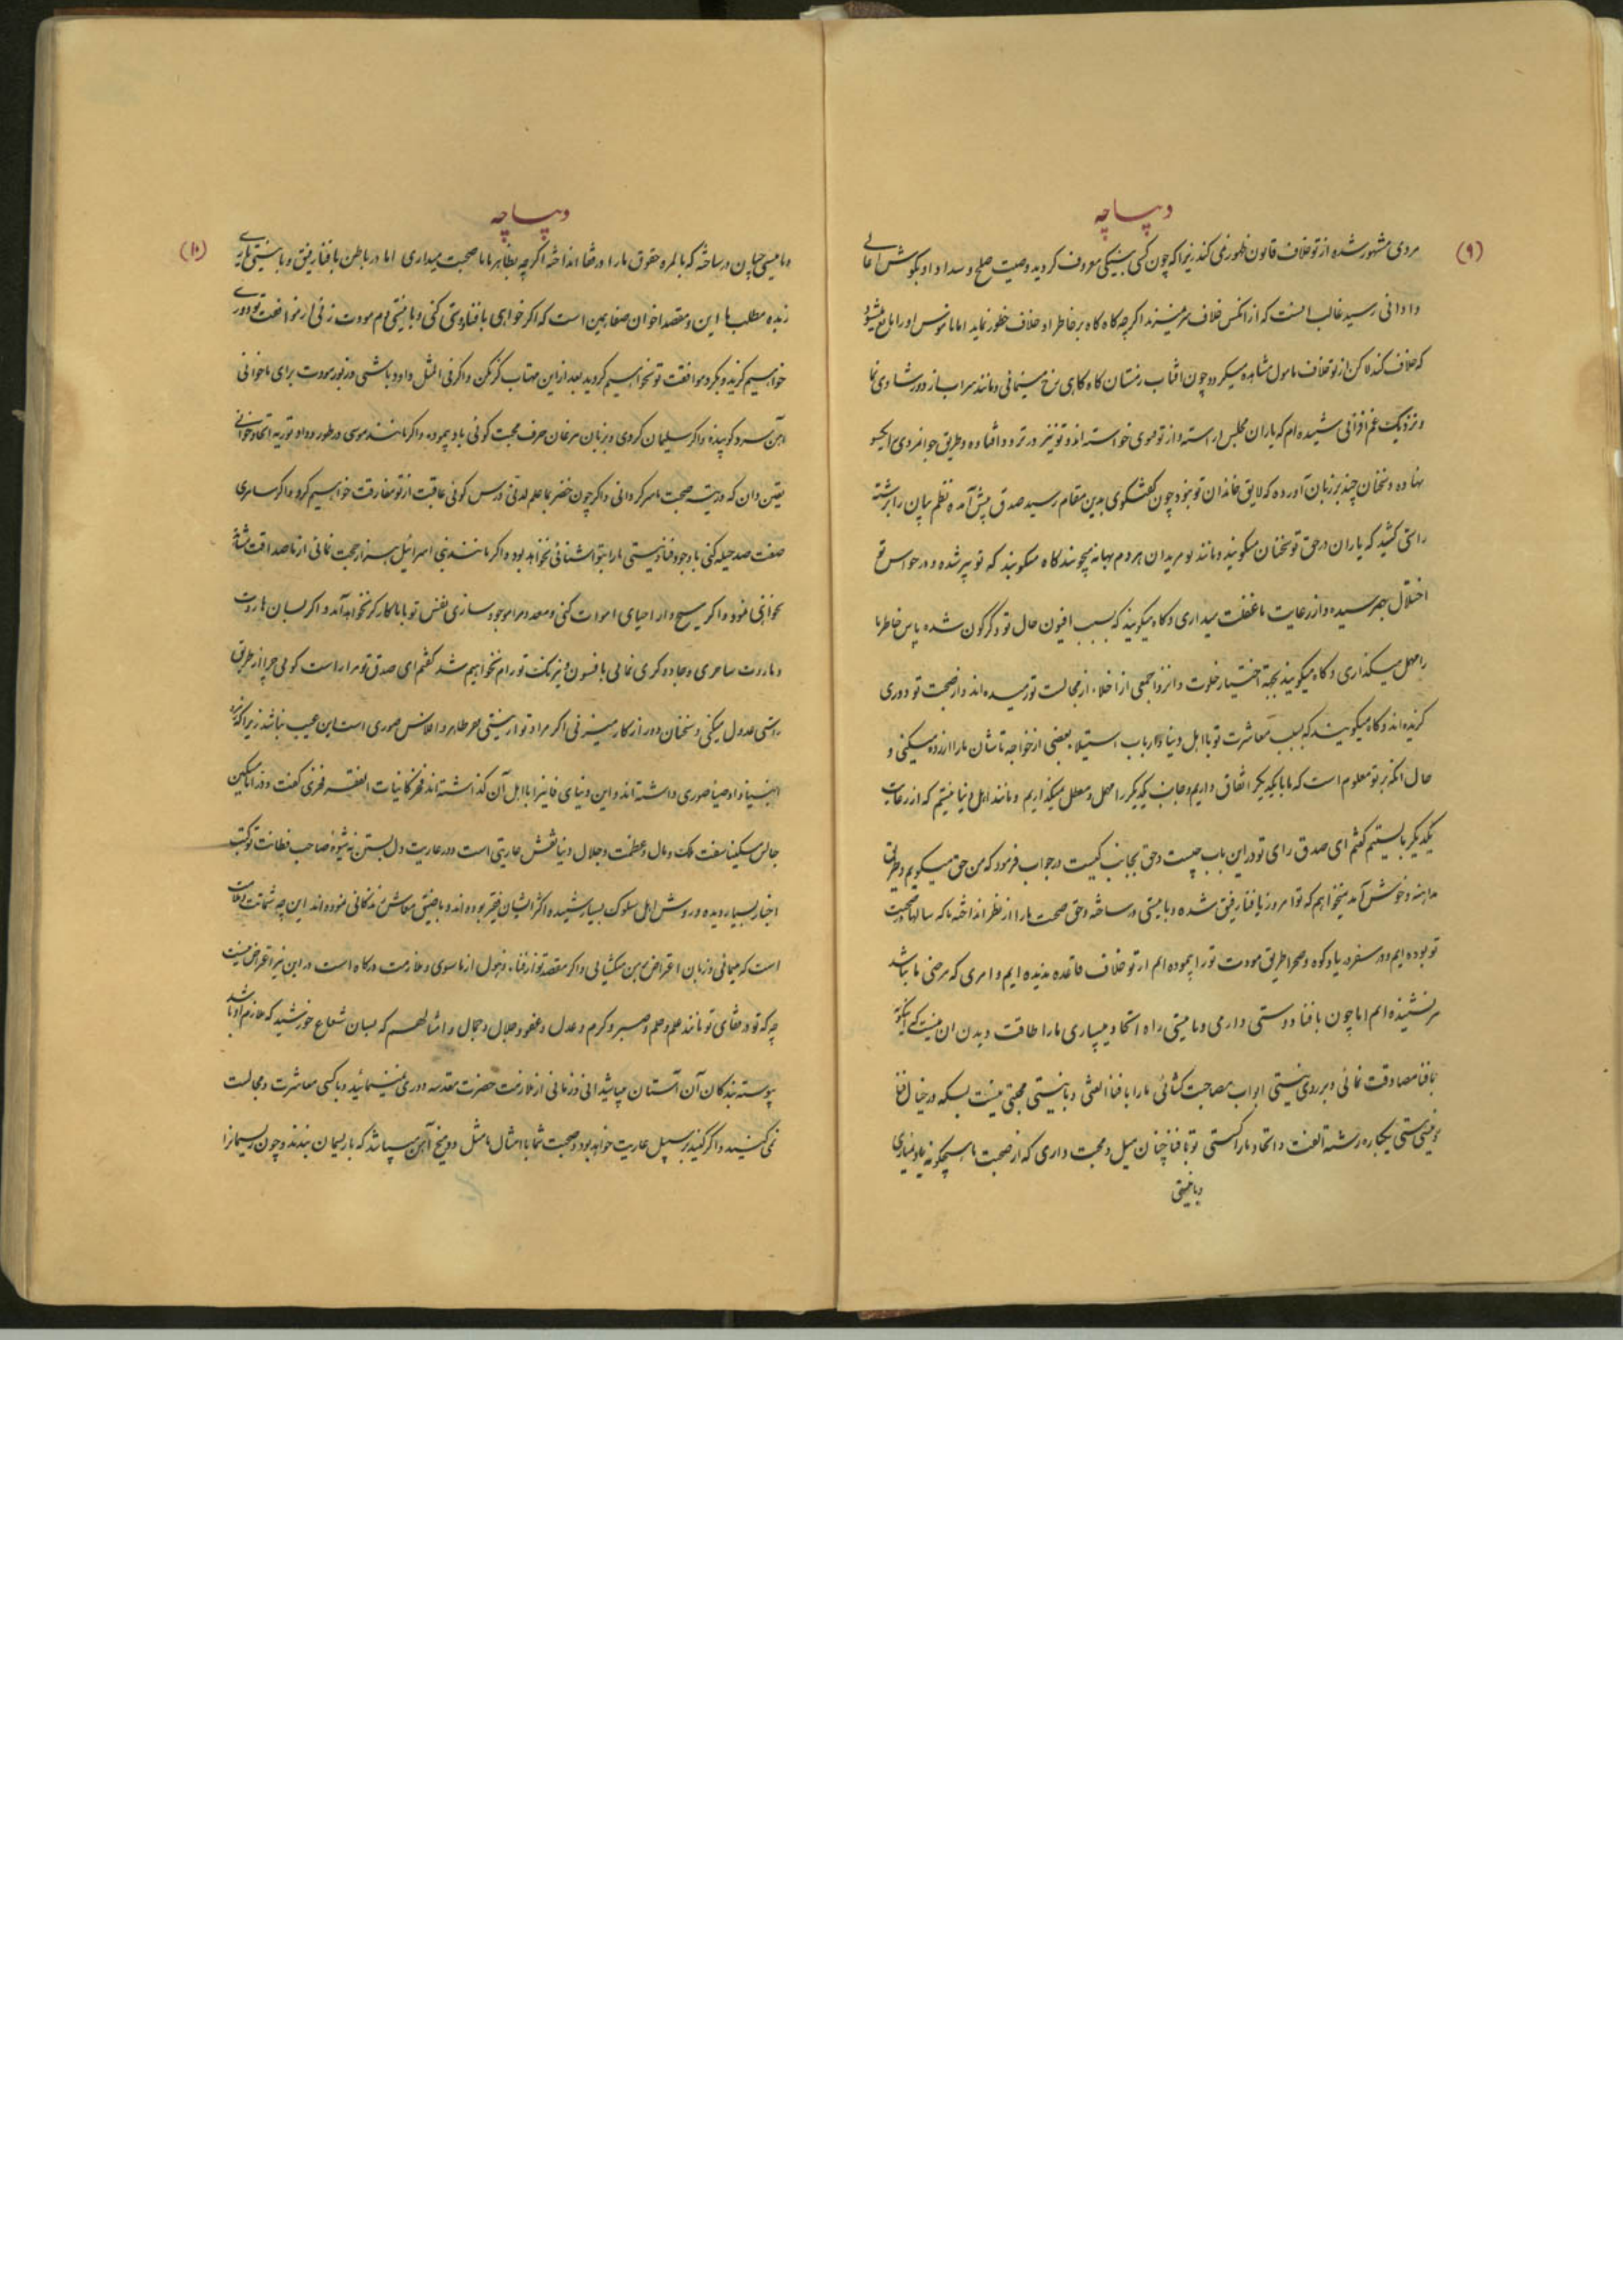 دیباچه
(۹)
مردی مشهور شده از تو خلاف قانون ظهور نمی کند زیرا که چون کسی به نیکی معروف کردید وصیت صلح و سداد او بکوش اعالی
و ادانی رسید غالب انست که از انکس خلاف سر نمیزند اکرچه کاه کاه بر خاطر او خلاف خطور نماید اما ناموس او را مانع میشود
که خلاف کند لاکن از تو خلاف مامول مشاهده میکردد چون افتاب زمستان کاه کاهی رخ مینمائی و مانند سراب از دور شادی نما
و نزدیک غم افزائی شنیده ام که یاران مجلس اراسته و از تو خواسته اند و تو نیز در تردد افتاده و طریق جوانمردی یکسو
نهاده و سخنان چند بر زبان آورده که لایق خاندان تو نبود چون کفتکوی بدین مقام رسید صدق پیش آمده نظم بیان را برشته
راستی کشید که یاران در حق تو سخنان میکویند و مانند بو مریدان هر دم بهانه میجویند کاه میکویند که تو پیر شده و در حواس تو
اختلال بهم رسیده و از رعایت ما غفلت میداری و کاه میکویند که بسبب افیون حال تو دکرکون شده پاس خاطر ما
را مهمل میکذاری و کاه میکویند بجهة اختیار خلوت و انزوا جمعی از اخلاء از مجالست تو رمیده اند و از صحبت تو دوری
کزیده اند و کاه میکویند که بسبب معاشرت تو با اهل دنیا و ارباب استیلا بعضی از خواجه تاشان ما را ازرده میکنی و
حال انکه بر تو معلوم است که ما با یکدیکر اتفاق داریم و جانب یکدیکر را مهمل و معطل میکذاریم و مانند اهل دنیا نیستیم که از رعایت
یکدیکر باز ایستیم کفتم ای صدق رای تو در این باب چیست و حق بجانب کیست در جواب فرمود که من حق میکویم و طریق
مداهنه و خوش آمد نمیخواهم که تو امروز با فنا رفیق شده و با نیستی در ساخته و حق صحبت ما را از نظر انداخته ما که سالها در صحبت
تو بوده ایم و در سفر دریا و کوه و صحرا طریق مودت تو را پیموده ایم از تو خلاف قاعده ندیده ایم و امری که مرضی ما نباشد
نشنیده ایم اما چون با فنا دوستی داری و با نیستی راه اتحاد میسپاری ما را طاقت دیدن ان نیست که
با فنا مصادقت نمائی و بر روی نیستی ابواب مصاحبت کشائی ما را با فنا الفتی و با نیستی محبتی نیست بسکه در خیال فنا
و نیستی هستی یکباره رشته الفت و اتحاد ما را کسستی تو با فنا چنان میل و محبت داری که از صحبت ما هیچکونه یاد نمیاری
و با نیستی
دیباچه
(۱۰)
و با نیستی چنان در ساخته که بالمره حقوق ما را در قفا انداخته اکرچه بظاهر با ما صحبت میداری اما در باطن با فنا رفیق و با نیستی یاری
زبده مطلب ما این و مقصد اخوان صفا همین است که اکر خواهی با فنا دوستی کنی و با نیستی دم مودت زنی از موافقت تو دوری
خواهیم کزید و بکرد موافقت تو نخواهیم کردید بعد از این مهتاب کز مکن و اکر فی المثل داود باشی و زبور مودت برای ما خوانی
اهن سرد کوبیده و اکر سلیمان کردی و بزبان مرغان حرف محبت کوئی باد پیموده و اکر مانند موسی در طور وداد توریه اتحاد خوانی
یقین دان که در تیه صحبت ما سرکردانی و اکر چون خضر با ما علم لدنی درس کوئی عاقبت از تو مفارقت خواهیم کرد و اکر سامری
صفت صد حیله کنی با وجود فنا و نیستی ما را بتو اشنائی نخواهد بود و اکر مانند نبی اسرائیل هزار حجت نمائی از ما صداقت نشاة
نخواهی فزود و اکر مسیح وار احیای اموات کنی و معدوم را موجود سازی نفس تو با ما کارکر نخواهد آمد و اکر بسان هاروت
و ماروت ساحری و جادو کری نمائی با فسون و نیرنکت تو رام نخواهیم شد کفتم ای صدق تو مرا راست کوئی چرا از طریق
راستی عدول میکنی و سخنان دور از کار میزنی اکر مراد تو از نیستی فقر ظاهر و افلاس صوری است این عیب نباشد زیرا که
انبیا و اوصیا صوری داشته اند و این دنیای فانی را با اهل آن کذاشته اند فخر کائنات الفقر فخری کفت و در انا مسکین
جالس مسکینا سفت ملک و مال و عظمت و جلال دنیا نقش عاریتی است و در عاریت دل بستن نه شیوهٔ صاحب فطانت تو کتب
اخبار بسیار دیده و روش اهل سلوک بسیار شنیده اکثر ایشان فقیر بوده اند و با نیستی معاش زندکانی نموده اند این چه شماتت
است که مینمائی و زبان اعتراض بمن میکشائی و اکر مقصد تو از فناء ذهول از ما سوی و ملازمت درکاه است در این نیز اعتراض نیست
چه که تو و رفقای تو مانند علم و حلم و صبر و کرم و عدل و عفو و جلال و جمال و امثالهم که بسان شعاع خورشید که ملازم او باشد
پیوسته بندکان آن آستان میباشید انی و زمانی از ملازمت حضرت مقدسه دوری نمینمائید و با کسی معاشرت و مجالست
نمی کنید و اکر کنید بر سبیل عاریت خواهد بود و صحبت شما با امثال ما مثل دو میخ آهن میباشد که با ریسمان ببندند و چون ریسمانرا